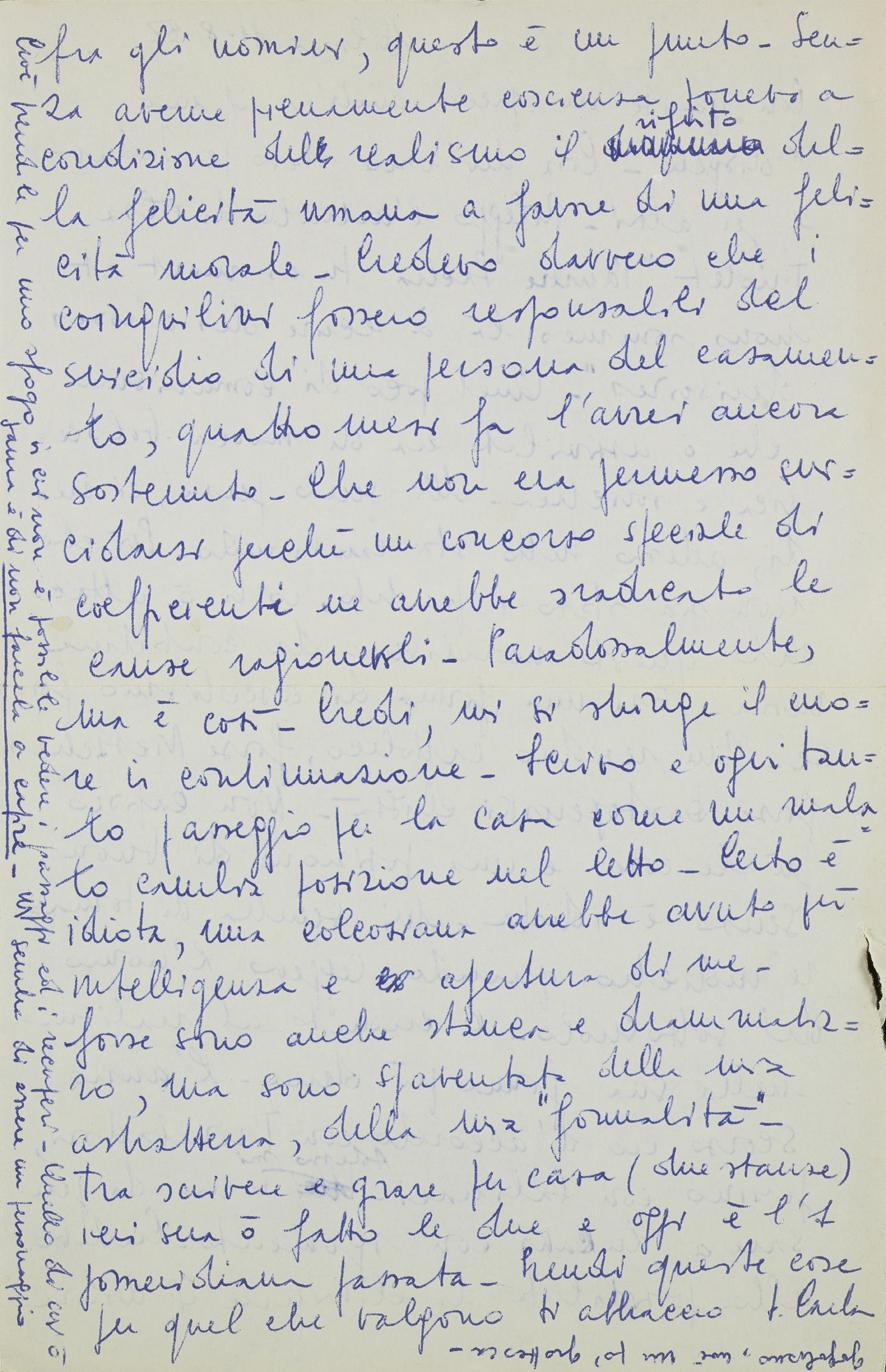 fra gli uomini, questo è un punto - Sen=
za averne pienamente coscienza ponevo a
condizione del realismo il rifiuto del=
la felicità umana a favore di una feli=
cità morale - Credevo davvero che i
coinquilini fossero responsabili del
suicidio di una persona del casamen=
to, quattro mesi fa l'avrei ancora
sostenuto - Che non era permesso sui=
cidarsi perché un concorso speciale di
coefficienti ne avrebbe sradicato le
cause ragionevoli - Paradossalmente,
ma è così - Credi, mi si stringe il cuo=
re in continuazione - Scrivo e ogni tan=
to passeggio per la casa come un mala=
to cambia posizione nel letto - Certo è
idiota, una colcosiana avrebbe avuto più
intelligenza e apertura di me -
forse sono anche stanca e drammatiz=
zo, ma sono spaventata della mia
astrattezza, della mia "formalità" -
Tra scrivere e girare per casa (due stanze)
ieri sera ò fatto le due e oggi è l'1
pomeridiana passata - Prendi queste cose
per quel che valgono ti abbraccio t. Carla
Cioè prendile per uno sfogo in cui non è possibile vedere i passaggi ed i recuperi - Quello di cui ò
paura è di non farcela a capire - Mi sembra di essere un personaggio
gogoliano, cioè un po' grottesca -